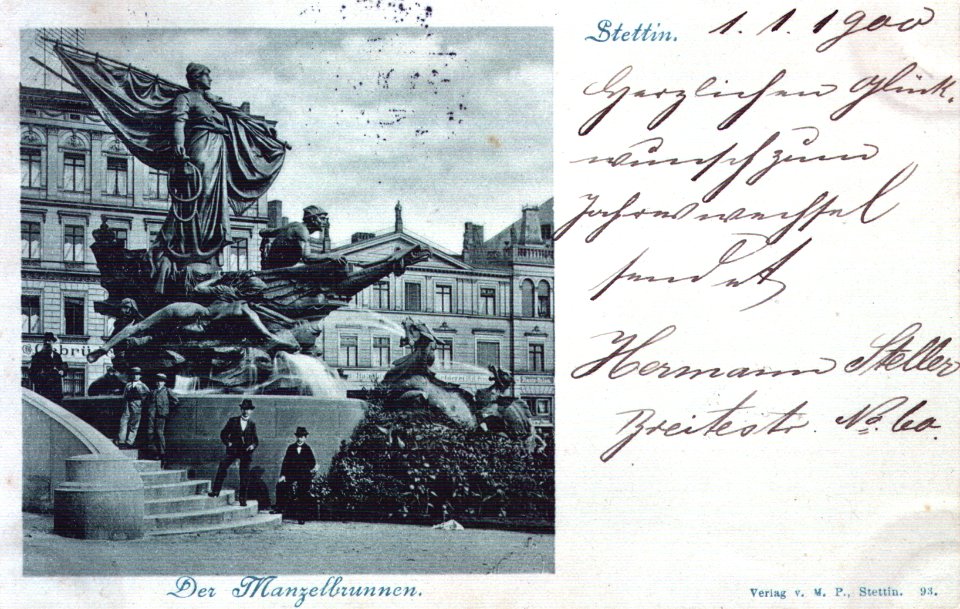 Stettin. 1. 1. 1900
Herzlichen Glück-
wunsch zum
Jahreswechsel
sendet
Hermann Steller
Breitestr. No. 60.
Der Manzelbrunnen.
Verlag v. M. P., Stettin. 93.